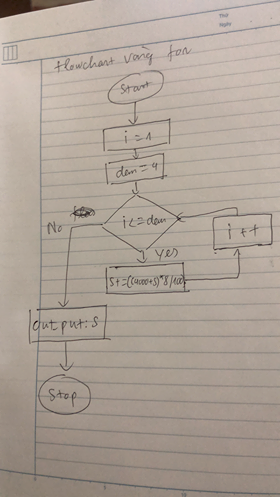 flowchart vòng for
Start
i = 1
dem = 4
i <= dem
No
Yes
i++
S+=((4000+S)*8/100)
output: S
Stop